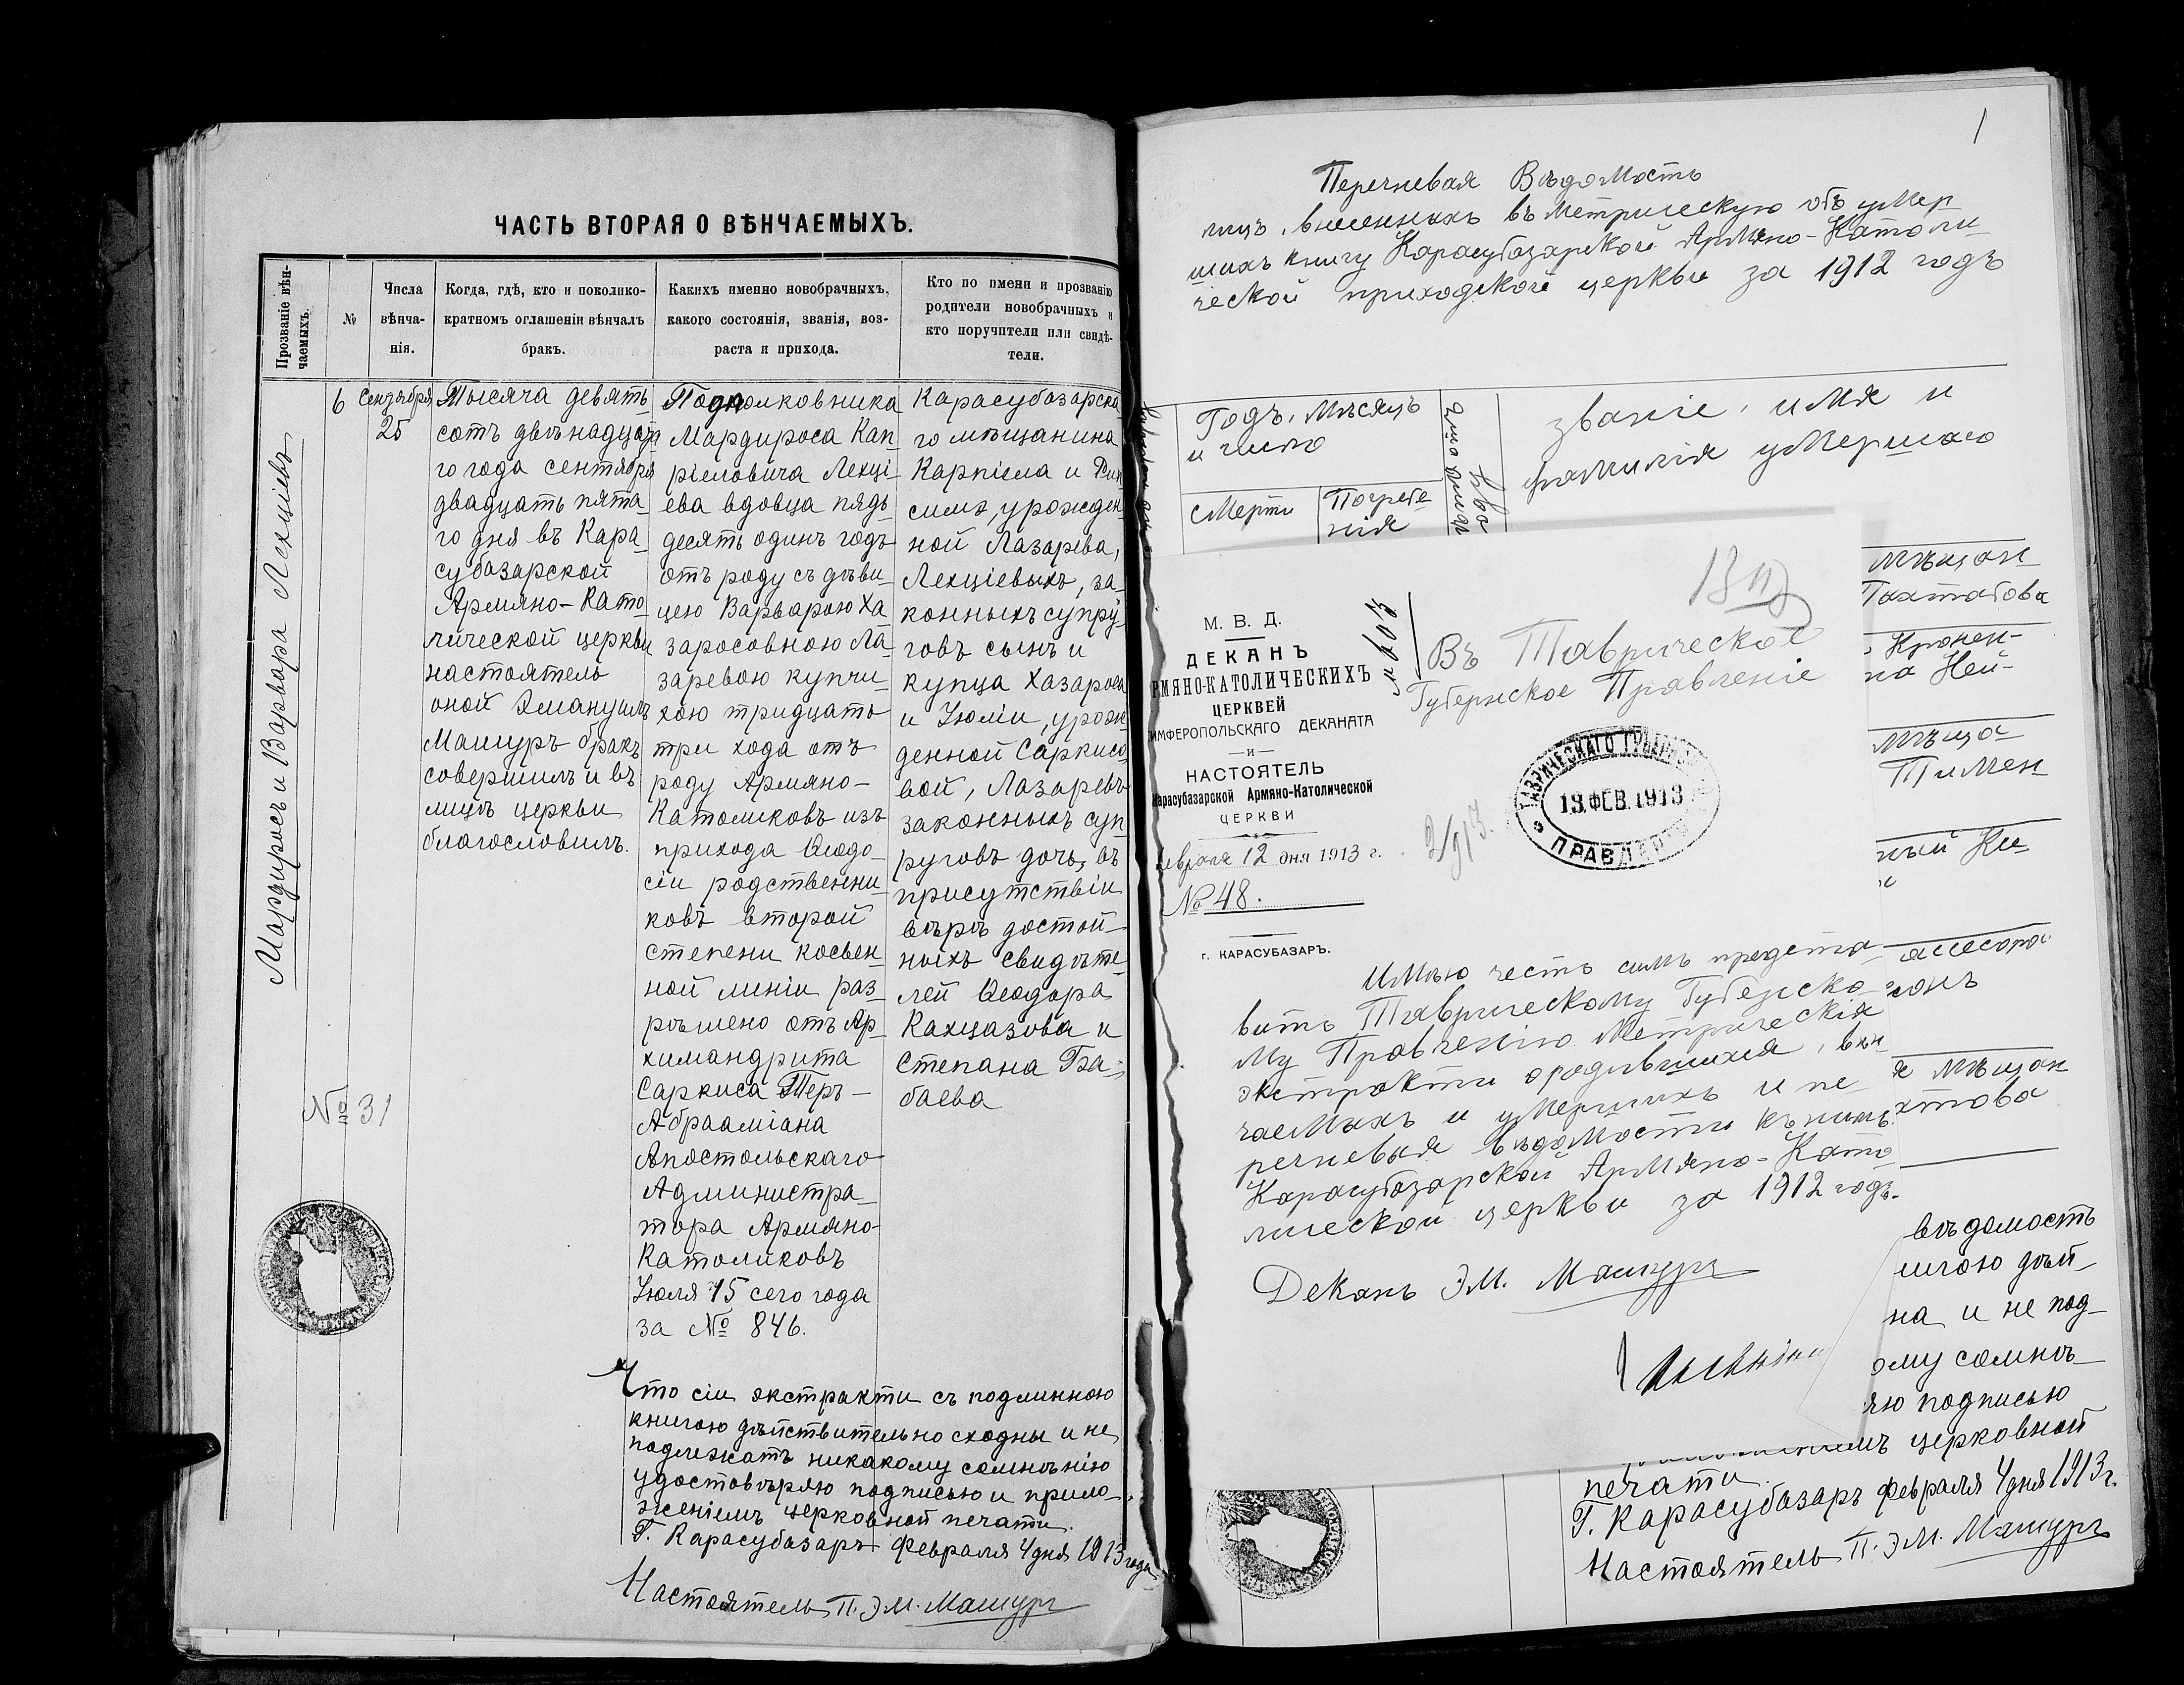 ЧАСТЬ ВТОРАЯ О ВѢНЧАЕМЫХЪ.
Прозваніе вѣн-
чаемыхъ.
№
Числа
вѣнча-
нія.
Когда, гдѣ, кто и поколико-
кратномъ оглашеніи вѣнчалъ
бракъ.
Какихъ именно новобрачныхъ,
какого состоянія, званія, воз-
раста и прихода.
Кто по имени и прозванію
родители новобрачныхъ и
кто поручители или свидѣ-
тели.
Мардиросъ и Варвара Лехціевъ
№ 31
6
Сентября
25
Тысяча девять
сотъ двѣнадцата
го года сентября
двадцать пята-
го дня въ Кара-
субазарской
Армяно-Като
лической церкви
настоятель
оной Эмануилъ
Машуръ бракъ
совершилъ и въ
лицѣ церкви
благословилъ.
Подполковника
Мардироса Кап
ріеловича Лехці-
ева вдовца пядь
десять одинъ годъ
отъ роду съ дѣви-
цею Варварою Ха
заросовною Ла-
заревою купчи-
хою тридцать
три хода отъ
роду Армяно-
Католиковъ изъ
прихода Ѳеодо-
сіи родственни-
ковъ второй
степени косвен-
ной линіи раз-
рѣшено отъ Ар-
химандрита
Саркиса Теръ-
Абрааміана
Апостольскаго
Администра-
тора Армяно-
Католиковъ
Іюля 15 сего года
за № 846.
Карасубазарска-
го мѣщанина
Карпіела и
симэ, урожден-
ной Лазарева,
Лехціевыхъ, за-
конныхъ супру-
говъ сынъ и
купца Хазароса
и Іюліи, урож-
денной Саркисо-
вой, Лазаревъ
законныхъ суп-
руговъ дочь, въ
присутствіи
вѣро достой-
ныхъ свидѣте-
лей Ѳеодора
Кахцазова и
Степана Ба-
баева
Что сіи экстракти съ подлинною
книгою дѣйствительно сходны и не
подлежатъ никакому сомнѣнію
удостовѣряю подписью и прило-
женіемъ церковной печати.
Г. Карасубазаръ Февраля 4 дня 1913 года
Настоятель П. Эм. Машуръ
1
Перечневая Вѣдомость
лицъ, внесенныхъ въ метрическую объ умер
шихъ книгу Карасубазарской Армяно-Католи
ческой приходской церкви за 1912 годъ
Годъ, мѣсяцъ
и число
смерти
Погребе
нія
званіе, имя и
фамилія умершаго
М. В. Д.
ДЕКАНЪ
РМЯНО-КАТОЛИЧЕСКИХЪ
ЦЕРКВЕЙ
ИМФЕРОПОЛЬСКАГО ДЕКАНАТА
—и—
НАСТОЯТЕЛЬ
Карасубазарской Армяно-Католической
ЦЕРКВИ
евраля 12 дня 1913 г.
№ 48.
г. КАРАСУБАЗАРЪ.
Въ Таврическое
Губернское Правленіе
13.ФЕВ.1913
Имѣю честь симъ предста-
вить Таврическому Губернско-
му Правленію Метрическія
экстракти о родившихся, вѣн-
чаемыхъ и умершихъ и пе-
речневыя вѣдомости къ нимъ
Карасубазарской Армяно-Като
лической церкви за 1912 годъ.
Деканъ Эм. Машуръ
мѣщан
Тахтабова
Кронен-
на Ней-
мѣща-
Тимен
ный Ки
ассесора
сонъ
я мѣщан
хтова
вѣдомость
нигою дѣй-
на и не под-
ому сомнѣ-
яю подписью
церковной
печати.
Г. Карасубазаръ Февраля 4 дня 1913 г.
Настоятель П. Эм. Машуръ